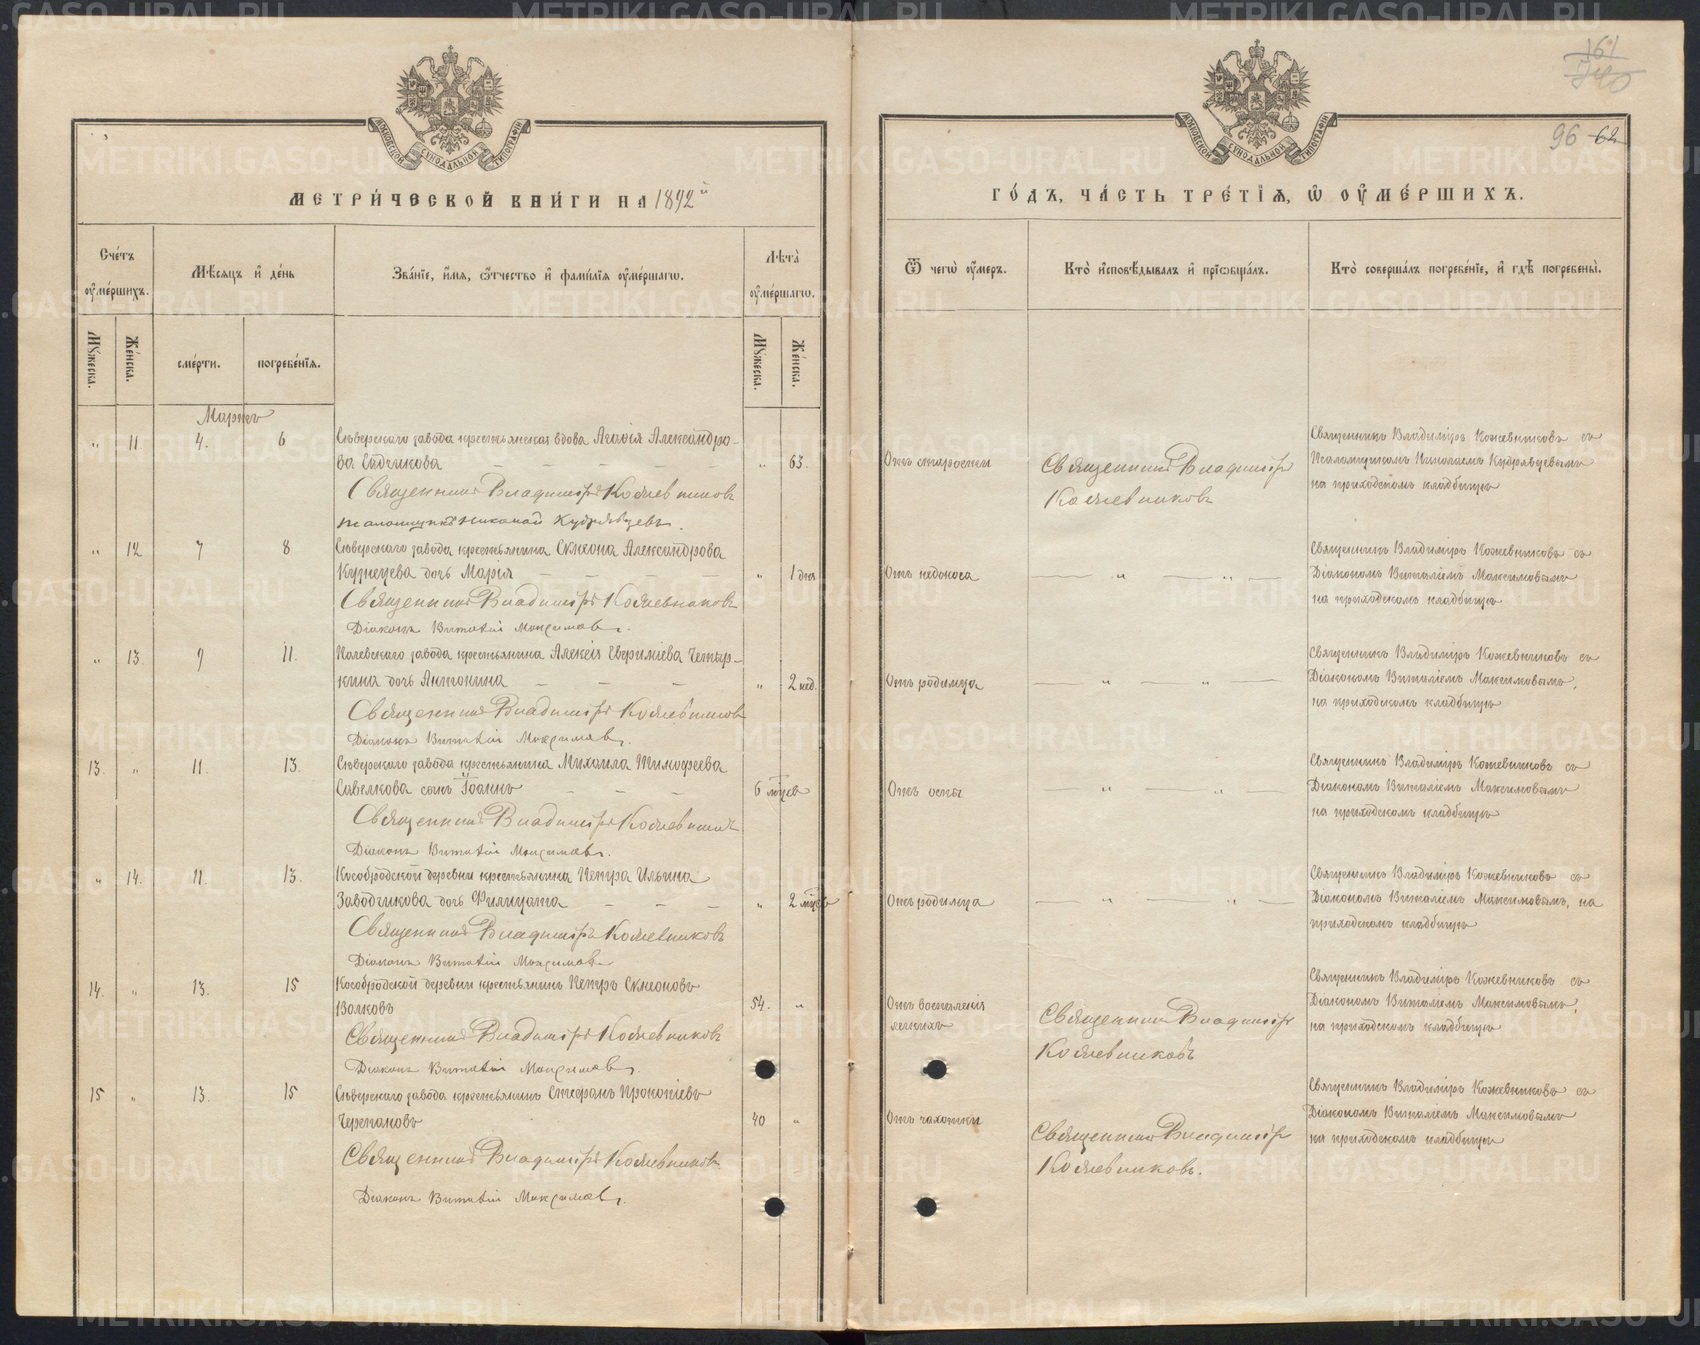 МОСКОВСКОЙ СѴНОДАЛЬНОЙ ТИПОГРАФІИ
МЕТРИ́ЧЕСКОЙ КНИ́ГИ НА 1892й
Сче́тъ ᲂу҆ме́ршихъ.
Мѣ́сяцъ и҆ де́нь
Зва́нїе, и҆́мя, ѻ҆́тчество и҆ фами́лїя ᲂу҆ме́ршагѡ.
Лѣ́та ᲂу҆ме́ршагѡ.
Мꙋ́жеска.
Же́нска.
сме́рти.
погребе́нїя.
Мꙋ́жеска.
Же́нска.
Мартъ
" 11. 4. 6 Сѣверскаго завода крестьянская вдова Агафія Александро-
ва Садчикова — — — — — " 63.
Священникъ Владиміръ Кожевниковъ
Псаломщикъ Николай Кудрявцевъ.
" 12 7 8 Сѣверскаго завода крестьянина Симеона Александрова
Кузнецева дочь Марія — — — — " 1 дня
Священникъ Владиміръ Кожевниковъ
Діаконъ Виталій Максимовъ.
" 13. 9 11. Полевскаго завода крестьянина Алексія Евфиміева
дочь Антонина — — — " 2 нед.
Священникъ Владиміръ Кожевниковъ
Діаконъ Виталій Максимовъ.
13. " 11. 13. Сѣверскаго завода крестьянина Михаила Тимофеева
Савелкова сынъ Іоаннъ — — — 6 мцевъ
Священникъ Владиміръ Кожевниковъ
Діаконъ Виталій Максимовъ.
" 14. 11. 13. Кособродской деревни крестьянина Петра Ильина
Заводчикова дочь Филицата — — — " 2 мцевъ
Священникъ Владиміръ Кожевниковъ
Діаконъ Виталій Максимовъ
14. " 13. 15 Кособродской деревни крестьянинъ Петръ Симеоновъ
Волковъ 54. "
Священникъ Владиміръ Кожевниковъ
Діаконъ Виталій Максимовъ.
15 " 13. 15 Сѣверскаго завода крестьянинъ Стефанъ Прокопіевъ
Черепановъ 40 "
Священникъ Владиміръ Кожевниковъ
Діаконъ Виталій Максимовъ.
МОСКОВСКОЙ СѴНОДАЛЬНОЙ ТИПОГРАФІИ
161
96 62
ГО́ДЪ, ЧА́СТЬ ТРЕ́ТЇЯ, Ѡ҆ ОУ҆МЕ́РШИХЪ.
Ѿ чегѡ̀ ᲂу҆́меръ.
Кто̀ и҆сповѣ́дывалъ и҆ прїѡбща́лъ.
Кто̀ соверша́лъ погребе́нїе, и҆ гдѣ̀ погребены̀.
Отъ старости
Священникъ Владиміръ
Кожевниковъ
Священникъ Владиміръ Кожевниковъ съ
Псаломщикомъ Николаемъ Кудрявцевымъ
на приходскомъ кладбищѣ
Отъ недоноса — " — " —
Священникъ Владиміръ Кожевниковъ съ
Діакономъ Виталіемъ Максимовымъ
на приходскомъ кладбищѣ
Отъ родимца — " — " —
Священникъ Владиміръ Кожевниковъ съ
Діакономъ Виталіемъ Максимовымъ,
на приходскомъ кладбищѣ
Отъ оспы — " — " —
Священникъ Владиміръ Кожевниковъ съ
Діакономъ Виталіемъ Максимовымъ
на приходскомъ кладбищѣ
Отъ родимца — " — " —
Священникъ Владиміръ Кожевниковъ съ
Діакономъ Виталіемъ Максимовымъ, на
приходскомъ кладбищѣ
Отъ воспаленія
легкихъ
Священникъ Владиміръ
Кожевниковъ
Священникъ Владиміръ Кожевниковъ съ
Діакономъ Виталіемъ Максимовымъ,
на приходскомъ кладбищѣ
Отъ чахотки
Священникъ Владиміръ
Кожевниковъ.
Священникъ Владиміръ Кожевниковъ съ
Діакономъ Виталіемъ Максимовымъ
на приходскомъ кладбищѣ
METRIKI.GASO-URAL.RU